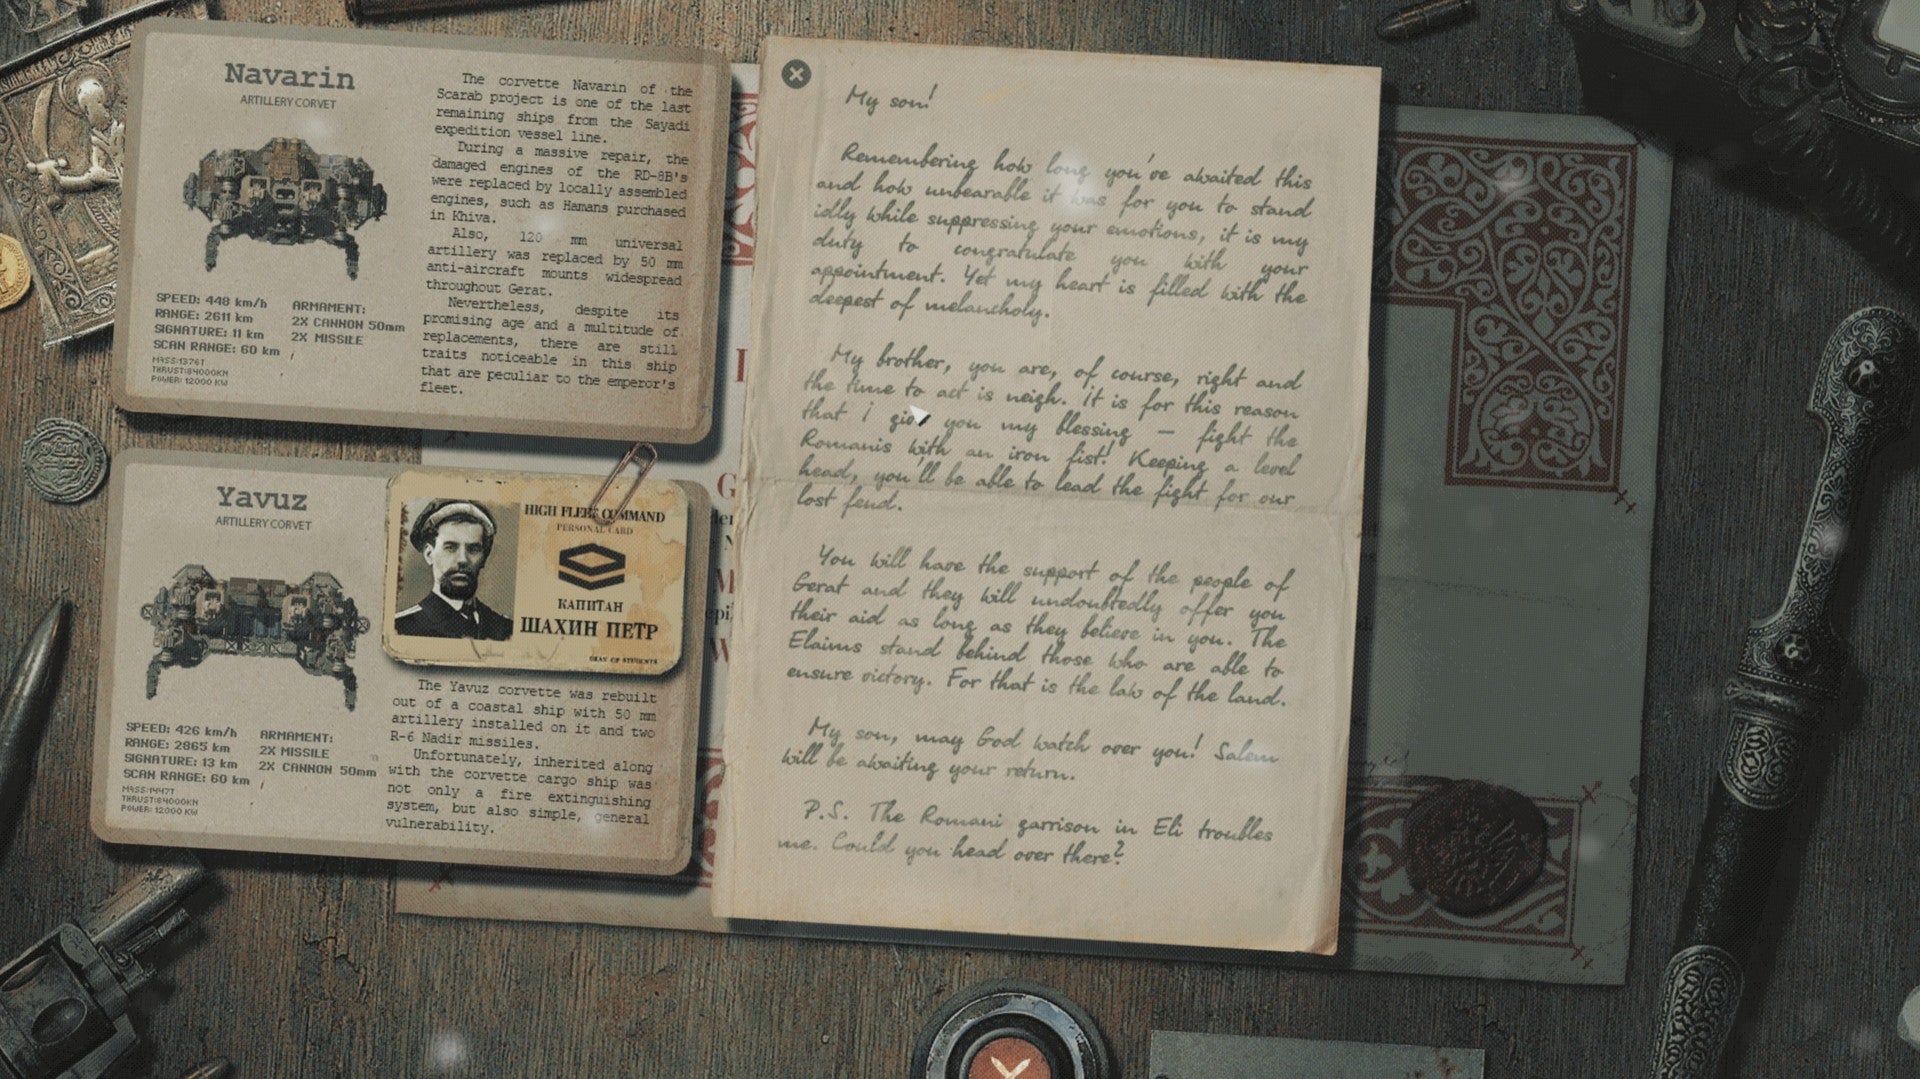 Navarin
ARTILLERY CORVET
SPEED: 448 km/h
RANGE: 2611 km
SIGNATURE: 11 km
SCAN RANGE: 60 km
MASS:1376T
THRUST:84000KN
POWER: 12000 KW
ARMAMENT:
2X CANNON 50mm
2X MISSILE
The corvette Navarin of the
Scarab project is one of the last
remaining ships from the Sayadi
expedition vessel line.
During a massive repair, the
damaged engines of the RD-8B's
were replaced by locally assembled
engines, such as Hamans purchased
in Khiva.
Also, 120 mm universal
artillery was replaced by 50 mm
anti-aircraft mounts widespread
throughout Gerat.
Nevertheless, despite its
promising age and a multitude of
replacements, there are still
traits noticeable in this ship
that are peculiar to the emperor's
fleet.
Yavuz
ARTILLERY CORVET
SPEED: 426 km/h
RANGE: 2865 km
SIGNATURE: 13 km
SCAN RANGE: 60 km
MASS:1447T
THRUST:84000KN
POWER: 12000 KW
ARMAMENT:
2X MISSILE
2X CANNON 50mm
HIGH FLEET COMMAND
PERSONAL CARD
КАПИТАН
ШАХИН ПЕТР
The Yavuz corvette was rebuilt
out of a coastal ship with 50 mm
artillery installed on it and two
R-6 Nadir missiles.
Unfortunately, inherited along
with the corvette cargo ship was
not only a fire extinguishing
system, but also simple, general
vulnerability.
My son!
Remembering how long you've awaited this
and how unbearable it was for you to stand
idly while suppressing your emotions, it is my
duty to congratulate you with your
appointment. Yet my heart is filled with the
deepest of melancholy.
My brother, you are, of course, right and
the time to act is neigh. It is for this reason
that I give you my blessing — fight the
Romanis with an iron fist! Keeping a level
head, you'll be able to lead the fight for our
lost feud.
You will have the support of the people of
Gerat and they will undoubtedly offer you
their aid as long as they believe in you. The
Elaims stand behind those who are able to
ensure victory. For that is the law of the land.
My son, may God watch over you! Salem
will be awaiting your return.
P.S. The Romani garrison in Eli troubles
me. Could you head over there?